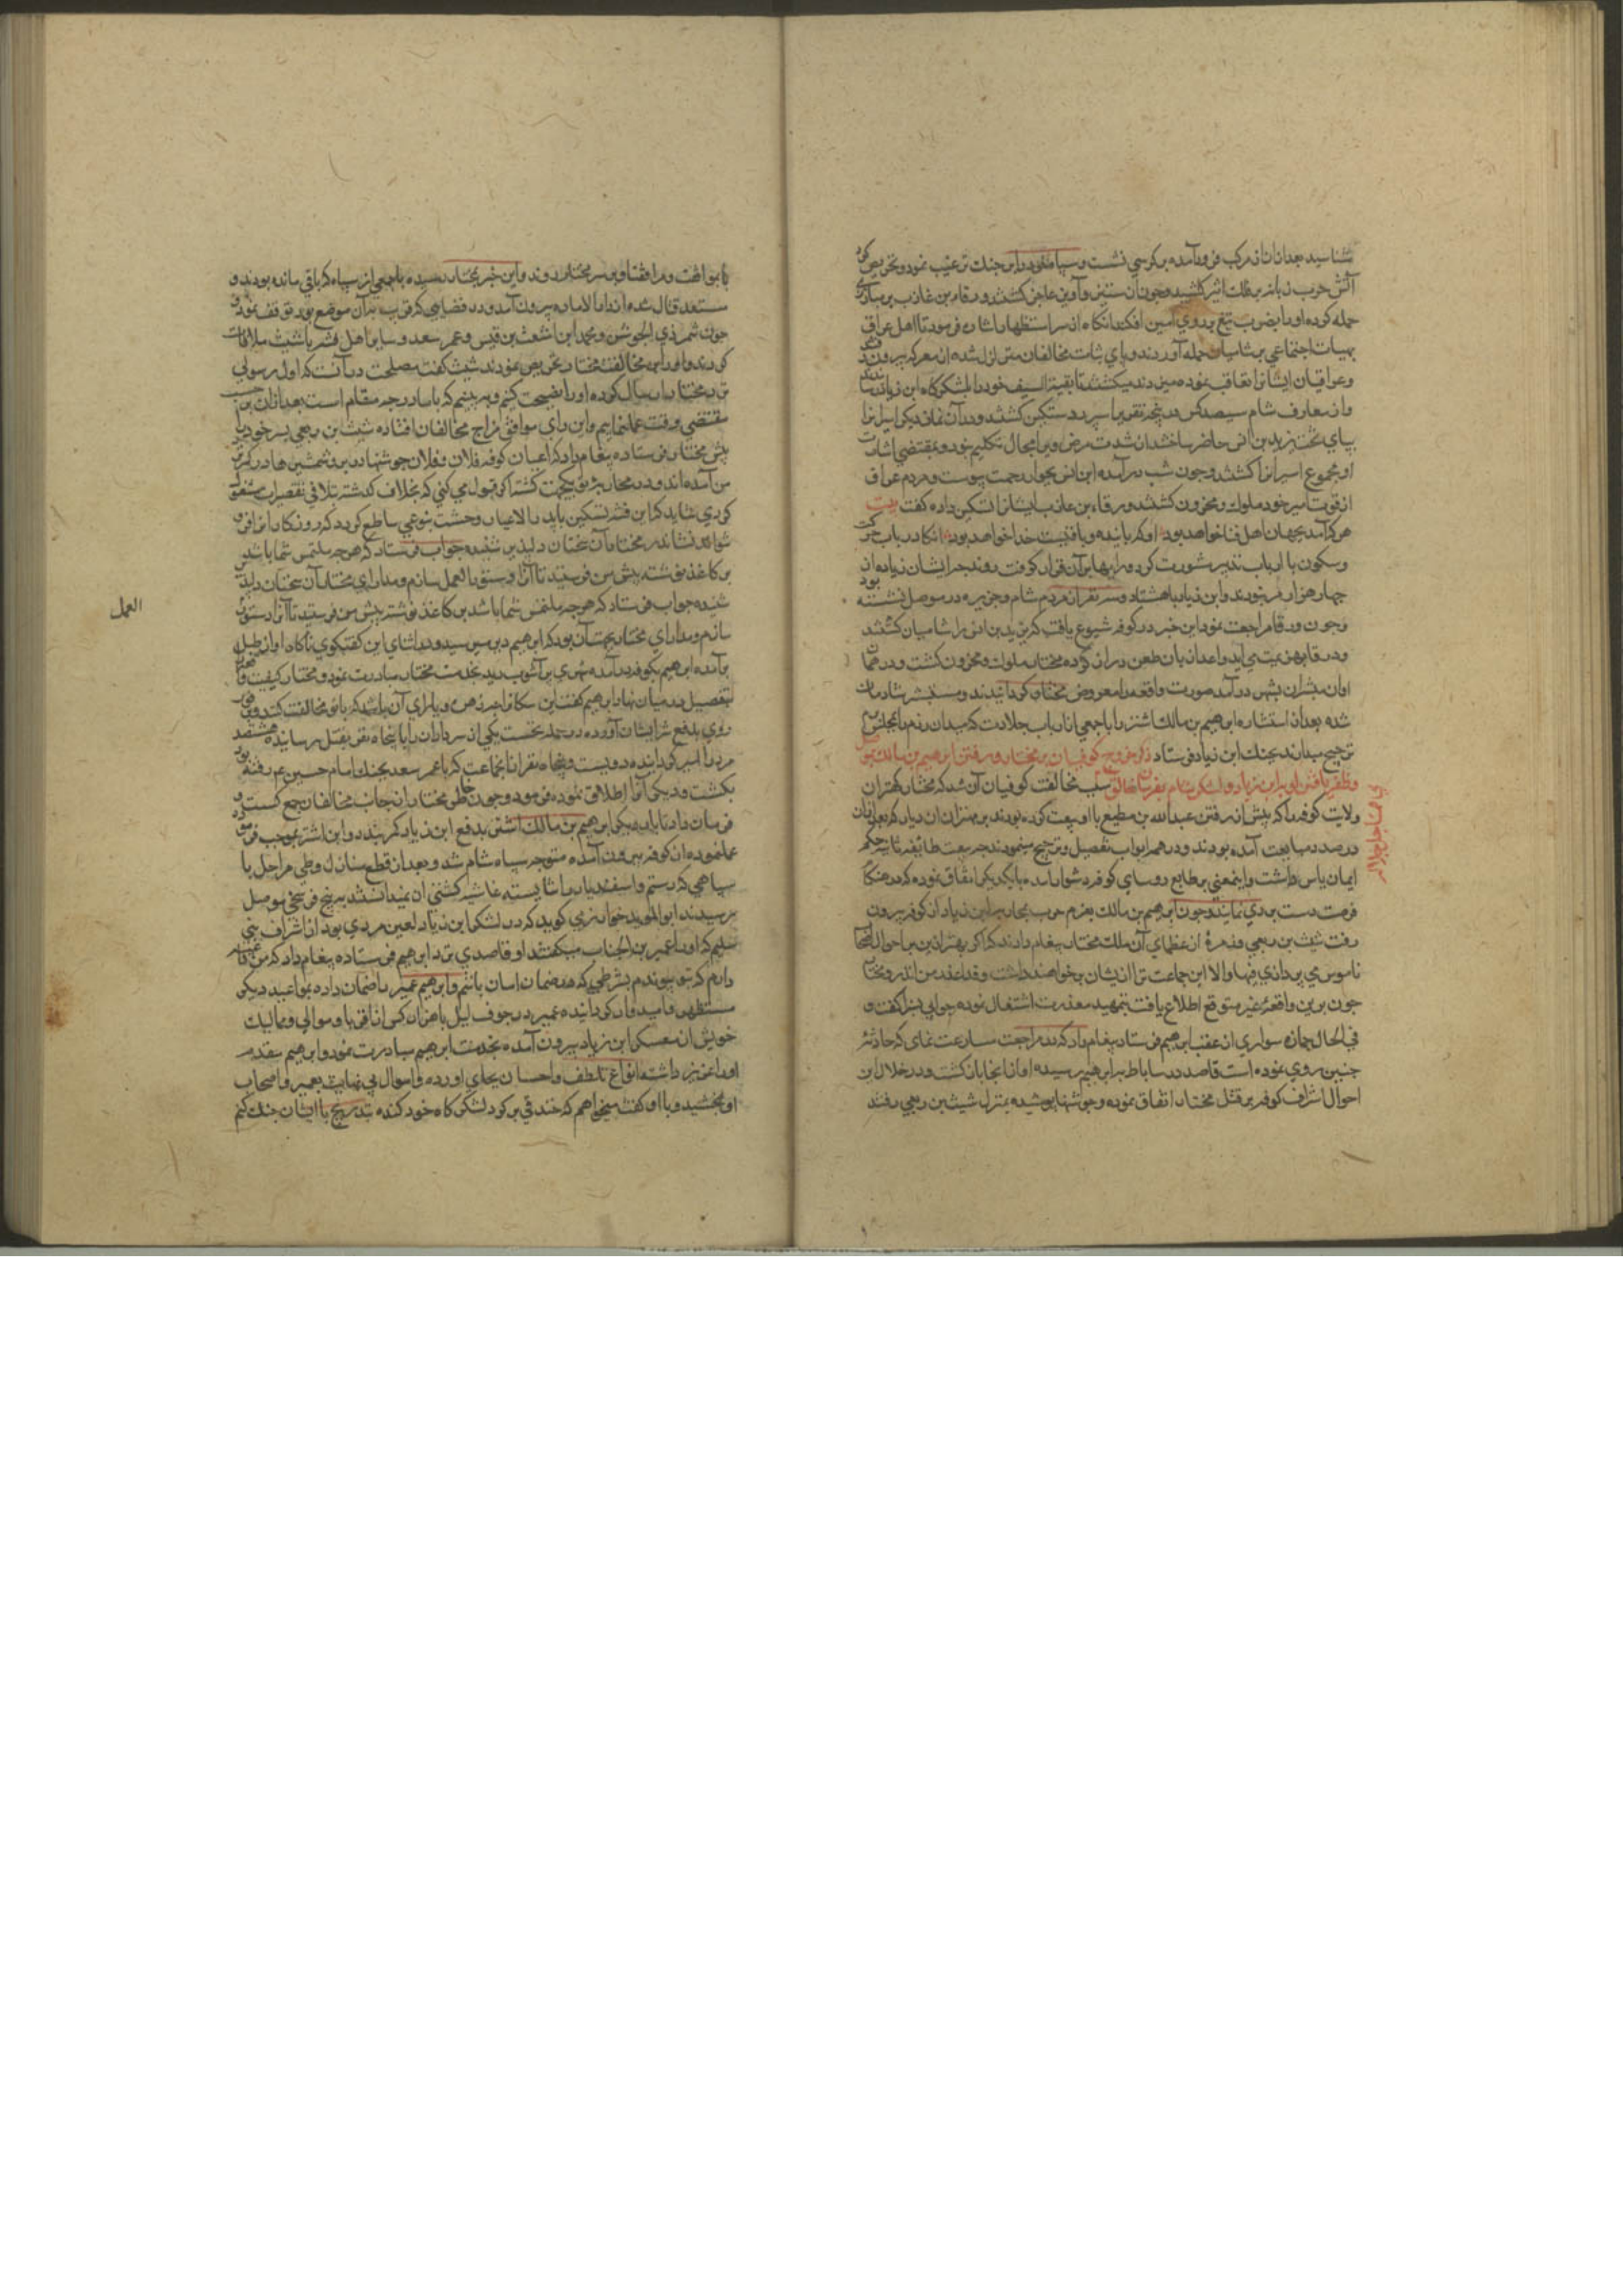 بشناسید بعد از آن از مرکب فرود آمده بر کرسی نشست و سپاه خود را بر جنک ترغیب نمود و تحریص کرد
آتش حرب زبانه بر فلک اثیر کشید و چون آن ستیز و آویز عاجز کشتند ورقاء بن عازب بر
حمله کرده او را بضرب تیغ بر روی زمین افکند انکاه از سر استظهار ایشان فرمود تا اهل عراق
بهیات اجتماعی بر شامیان حمله آوردند و پای ثبات مخالفان متزلزل شده از معرکه بیرون
و عراقیان ایشانرا تعاقب نموده میزدند و میکشتند تا بقیة السیف خود را بلشکرکاه ابن زیاد
و از معارف شام سیصد کس در پنجه تقدیر اسیر و دستکیر کشتند و در آن زمان که اسیرانرا
بپای تخت یزید بن انس حاضر ساختند از شدت مرض ویرا مجال تکلم نبود و بمقتضی اشارت
او مجموع اسیرانرا کشتند و چون شب در آمد ابن انس بجوار رحمت پیوست و مردم عراق
از فوت امیر خود ملول و محزون کشتند ورقاء بن عازب ایشانرا تسکین داده کفت بیت
هرکه آمد بجهان اهل فنا خواهد بود انکه پاینده و باقیست خدا خواهد بود انکاه در باب حرکت
و سکون با ارباب تدبیر مشورت کرده رایها بر آن قرار کرفت
چهار هزار مرد بودند و ابن زیاد با هشتاد و سه هزار مردم شام و جزیره در موصل نشسته بود
و چون ورقا مراجعت نمود این خبر در کوفه شیوع یافت که یزید بن انس را شامیان کشتند
و ورقا بهزیمت می آید و اعدا زبان طعن دراز کرده مختار ملول و محزون کشت و در همان
اوان مبشران بشهر در آمد صورت واقعه را معروض مختار کردانیدند و مستبشر و شادمان
شده بعد از استشاره ابرهیم بن مالک اشتر را با جمعی از ارباب جلادت که میدان رزم را بمجلس بزم
ترجیح میدادند بجنک ابن زیاد فرستاد ذکر خروج کوفیان بر مختار و رفتن ابرهیم بن مالک بموصل
و ظفر یافتن او بر ابن زیاد و لشکر شام بفرمان خالق علام سبب مخالفت کوفیان آن شد که مختار کهتران
ولایت کوفه را که پیش از رفتن عبدالله بن مطیع با او بیعت کرده بودند بر مهتران ان دیار که بعد از آن
در صدد مبایعت آمده بودند و در همه ابواب تفضیل و ترجیح مینمودند چه بیعت طایفه ثانیه حکم
ایمان یاس داشت و اینمعنی بر طبایع روسای کوفه دشوار آمده با یکدیکر اتفاق نموده که در هنکام
فرصت دست بردی نمایند و چون ابرهیم بن مالک بعزم حرب بجانب ابن زیاد از کوفه بیرون
رفت شیث بن ربعی و زمرهٔ از عظمای آن ملک بمختار پیغام دادند که اکر بهتر ازین بر احوال
ناموس می پردازی فبها والا این جماعت ترا ازیشان برخواهند داشت
چون برین واقعهٔ غیر متوقع اطلاع یافت بتمهید معذرت اشتغال نموده جوابی بسزا کفت و
فی الحال جمازه سواری از عقب ابرهیم فرستاد پیغام داد که در مراجعت مسارعت نمای که حادثهٔ
چنین روی نموده است قاصد در ساباط بر ابرهیم رسیده او از آنجا باز کشت و در خلال این
احوال اشراف کوفه بر قتل مختار اتفاق نموده و جوشنها پوشیده بمنزل شیث بن ربعی رفتند
با موافقت و مرافقت او بر سر مختار روند و این خبر بمختار رسیده با جمعی از سپاه که باقی مانده بودند و
مستعد قتال شده از دار الاماره بیرون آمد و در فضایی که قریب بدان موضع بود توقف نمود و
چون شمر ذی الجوشن و محمد ابن اشعث بن قیس و عمر سعد و سایر اهل فتنه با شیث ملاقات
کردند و او را بر مخالفت مختار تحریص نمودند شیث کفت مصلحت در آنست که اول رسولی
نزد مختار ارسال کرده او را نصیحت کنیم و ببینیم که با ما در چه مقام است بعد از آن بر حسب
مقتضی وقت عمل نماییم و این رای موافق مزاج مخالفان افتاده شیث بن ربعی پسر خود را
پیش مختار فرستاده پیغام داد که اعیان کوفه فلان و فلان جوشنها در بر و شمشیرها در کمر نزد
من آمده اند و در محاربهٔ تو یکجهت کشته اکر قبول می کنی که بخلاف کذشته تلافی تقصیرات
کردی شاید که این فتنه تسکین یابد والا غبار وحشت بنوعی ساطع کردد که روزکار انرا فرو
نتواند نشاند مختار آن سخنان دلپذیر شنیده جواب فرستاد که هرچه ملتمس شما باشد
بر کاغذ نوشته پیش من فرستید تا آنرا دستور العمل سازم و مدارای مختار آن سخنان دلپذیر
شنیده جواب فرستاد که هرچه ملتمس شما باشد بر کاغذ نوشته پیش من فرستید تا آنرا دستور
العمل
سازم و مدارای مختار بجهت آن بود که ابرهیم دیر میرسید و در اثنای این کفتکوی ناکاه اواز طبل
بر آمده ابرهیم بکوفه در آمده شهری پر آشوب دید بخدمت مختار مبادرت نمود و مختار کیفیت
بتفصیل در میان نهاد ابرهیم کفت این سکانرا چه زهره و یارای آن باشد که با تو مخالفت کنند
روی بدفع شر ایشان آورده در حمله نخست یکی از سرداران را با پنجاه نفر بقتل رسانیده هشتصد
مرد را اسیر کردانیده دویست و پنجاه نفر از انجماعت که با عمر سعد بجنک امام حسین ع م رفته بود
بکشت و دیکر آنرا اطلاق نموده فرمود و چون خاطر مختار از جانب مخالفان جمع کشت
فرمان داد تا بار دیکر ابرهیم بن مالک اشتر بدفع ابن زیاد کمر بندد و ابن اشتر بموجب فرموده
عمل نموده از کوفه بیرون آمده متوجه سپاه شام شد و بعد از قطع منازل و طی مراحل با
سپاهی که رستم و اسفندیار را شایسته غاشیه کشی ان نمیدانستند به پنج فرسخی موصل
رسیدند ابوالموید خوارزمی کوید که در لشکر ابن زیاد لعین مردی بود از اشراف بنی
سلیم که او را عمیر بن الجناب میکفتند او قاصدی نزد ابرهیم فرستاده پیغام داد که من
دارم که بتو پیوندم بشرطی که در ضمان امان باشم و ابرهیم عمیر را ضمان داده بمواعید دیکر
مستظهر و امیدوار کردانیده عمیر در جوف لیل با هزار کس از اقربا و موالی و ممالیک
خویش از معسکر ابن زیاد بیرون آمده بخدمت ابرهیم مبادرت نمود و ابرهیم مقدم
او را عزیز داشته انواع تلطف و احسان بجای آورده و اموال بی نهایت بعمیر و اصحاب
او بخشید و با او کفت میخواهم که خندقی بر کرد لشکرکاه خود کنده بتدریج با ایشان جنک کنم